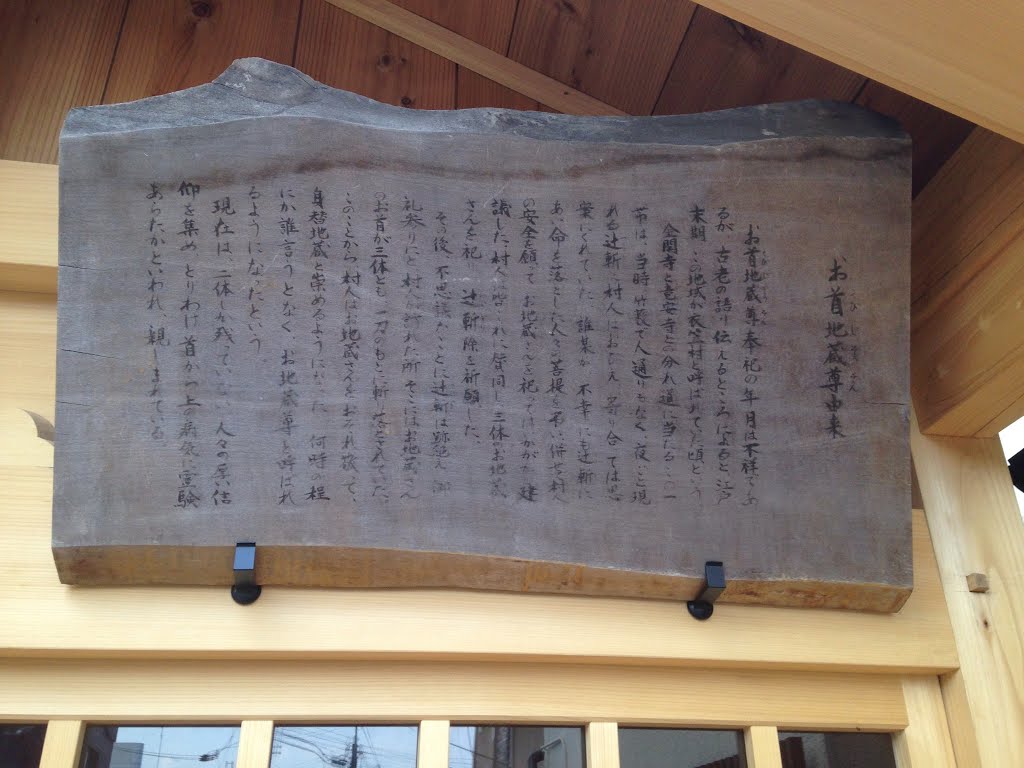 お首地蔵尊由来
お首地蔵尊奉祀の年月は不祥であ
るが、古老の語り伝えるところによると、江戸
末期、この地域が衣笠村と呼ばれていた頃という
金閣寺と竜安寺との分れ道に当るこの一
帯は、当時竹薮で人通りもなく、夜ごと現
れる辻斬に村人におびえ、寄り合ては思
案にくれていた。誰某が、不幸にも辻斬に
あい命を落とした人々の菩提を弔い併せ村人
の安全を願って、お地蔵さんを祀ってはいかがかと建
議した。村人は皆これに賛同し三体のお地蔵
さんを祀り、辻斬除を祈願した。
その後、不思議なことに辻斬は跡絶え、御
礼参りにと村人が訪れた所、そこにはお地蔵さん
のお首が三体とも、一刀のもとに斬り落とされていた。
このことから村人はお地蔵さんをおそれ敬って、
身替地蔵と崇めるようになった。何時の程
にか誰言うとなく、お首地蔵尊と呼ばれ
るようになったという。
現在は、二体しか残っていないが、人々の厚い信
仰を集め、とりわけ首から上の病気に霊験
あらたかといわれ、親しまれている